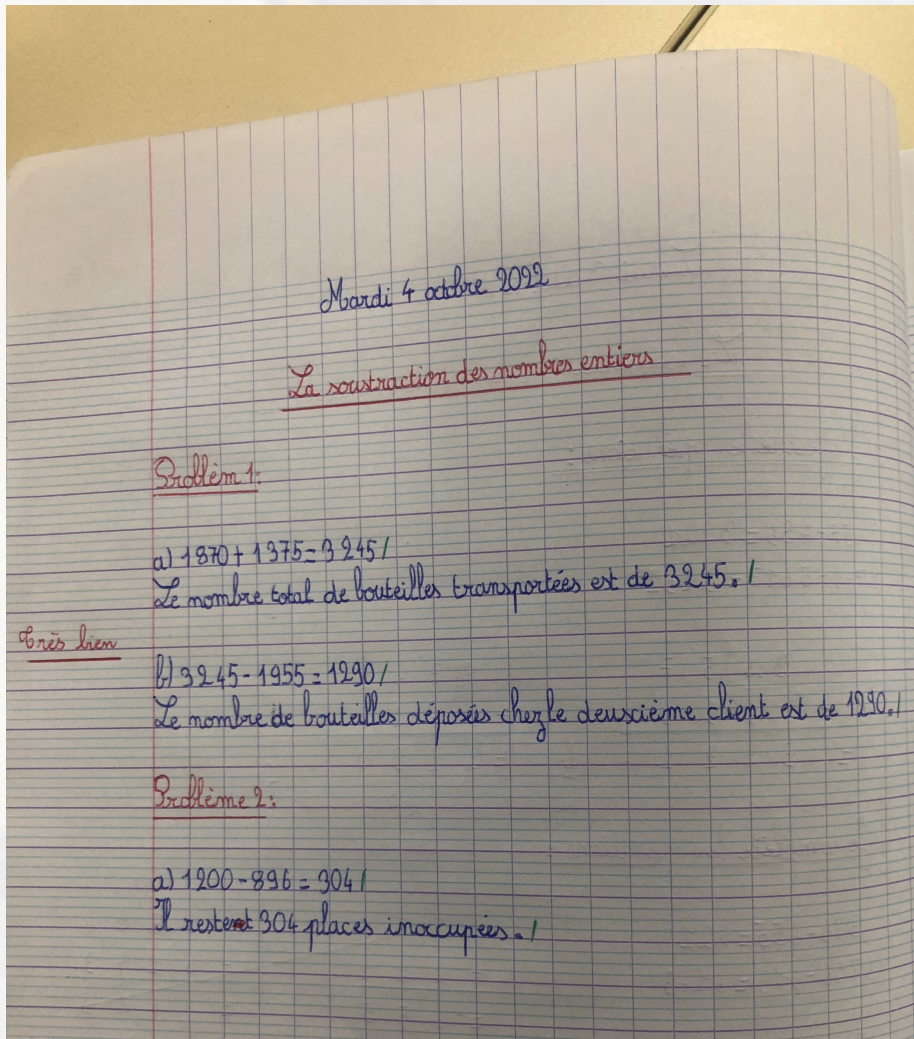 Mardi 4 octobre 2022
La soustraction des nombres entiers
Problèm 1:
a) 1870 + 1375 = 3245 /
Le nombre total de bouteilles transportées est de 3245. /
Très bien
b) 3245 - 1955 = 1290 /
Le nombre de bouteilles déposées chez le deuxième client est de 1290. /
Problème 2:
a) 1200 - 896 = 304 /
Il reste 304 places inoccupées. /